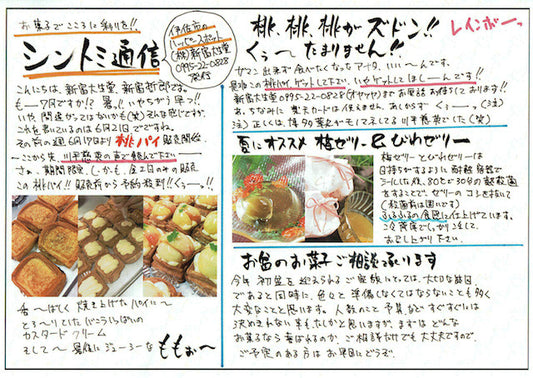 お菓子でこころに彩りを!!
シントミ通信
伊佐市の
ハッピースポット
(株)新富大生堂
0995-22-0828
発信
こんにちは、新富大生堂、新富哲郎です。
もー7月ですか!? 暑っ!! いやちがう 早っ!!
いや 間違ってはないかも(笑) そんな感じですが、
これを書いているのは6月21日でですね。
その前の週 6月17日より 桃パイ 販売開始
ここから先、川平慈英の声で読んで下さい
さぁ、期間限定、しかも、金土日のみの販売
この桃パイ!! 販売前から予約殺到!! くぅ〜っ。!!
香〜ばしく 焼き上げたパイに〜
とろ〜りとしたバニラいっぱいの
カスタードクリーム
そして〜 最後にジューシーな ももぉぉ〜
桃、桃、桃がズドン!!
くぅ〜 たまりません!!
レインボーっ
ガマン出来ず食いたくなったアイタ、いい〜んです。
是非この桃パイゲットして下さい、いやゲットしてほし〜んです!!
新富大生堂0995-22-0828(オヤツヤ)までお電話お待ちしております!!
ちなみに 楽天カードは使えません、あしからず くぅ〜っ(注)
注)正しくは、博多華丸がモノマネしてる川平慈英でした(笑)
夏にオススメ 梅ゼリー & びわゼリー
梅ゼリーとびわゼリーは
日持ちがするように耐熱容器で
シールした後、80℃で30分の熱殺菌
をすることで、ゼリーのコシを抜いて
(殺菌前は固いです)
ふるふるの食感に仕上げてます。
ご冷蔵庫でしっかり冷して、
お召し上がり下さい。
お盆のお菓子ご相談ふります
今年 初盆を迎えられるご家族にとっては、大切な節目
であると同時に、色々と 準備しなくてはならないことも多く
大変なことと思います。人数のこと 予算など すぐすぐには
決められない 事もたしかと思いますが、まずは どんな
お菓子なら 喜ばれるのか、ご相談だけでも 大丈夫ですので、
ご予定のある方は お早目にどうぞ。